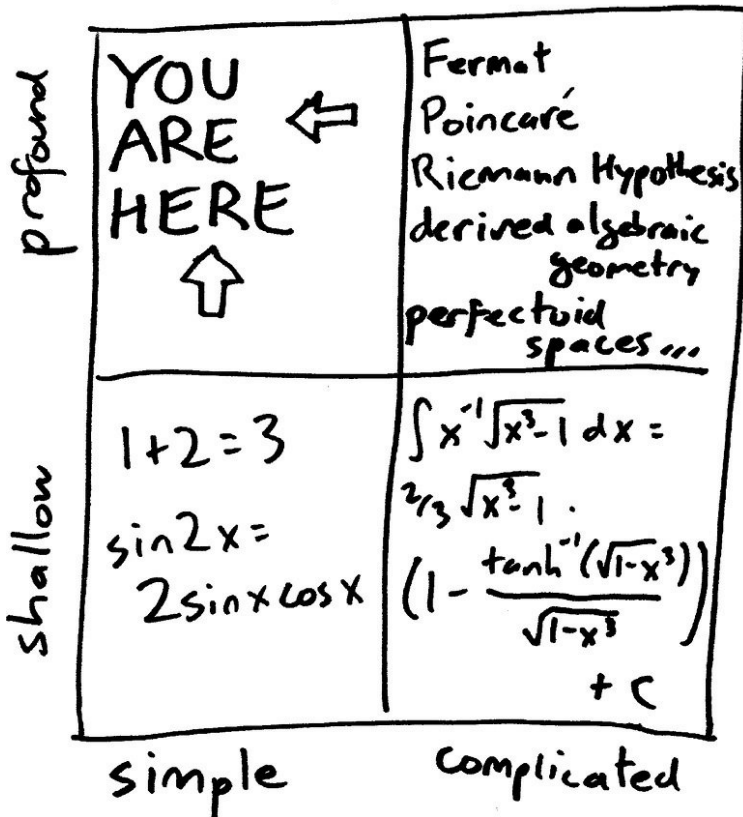 profound
YOU
ARE
HERE
Fermat
Poincaré
Riemann Hypothesis
derived algebraic
geometry
perfectoid
spaces...
shallow
1+2=3
sin2x=
2sinxcosx
∫x⁻¹√(x³-1) dx =
2/3 √(x³-1) ·
(1 - tanh⁻¹(√(1-x³)) / √(1-x³))
+ C
simple
complicated